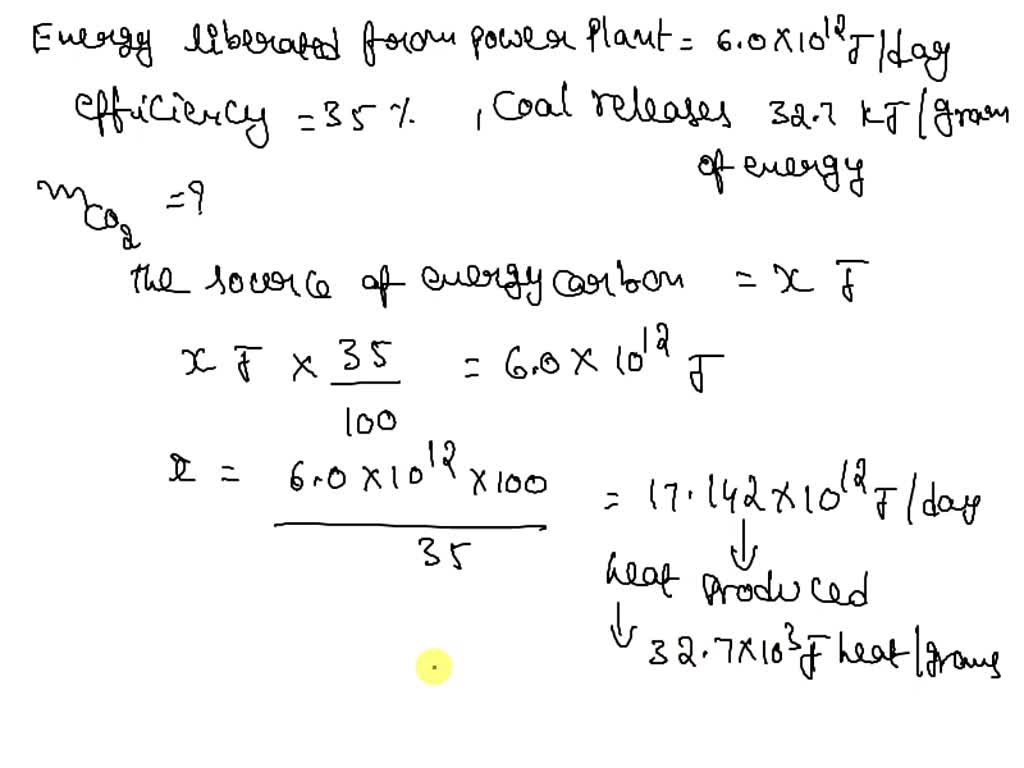 Energy liberated from power plant = 6.0 × 10¹² J/day
efficiency = 35 %, Coal releases 32.7 kJ/gram
of energy
mCO₂ = ?
the source of energy carbon = x J
x J × 35/100 = 6.0 × 10¹² J
x = 6.0 × 10¹² × 100 / 35 = 17.142 × 10¹² J/day
↓
heat produced
↓ 32.7 × 10³ J heat/grams